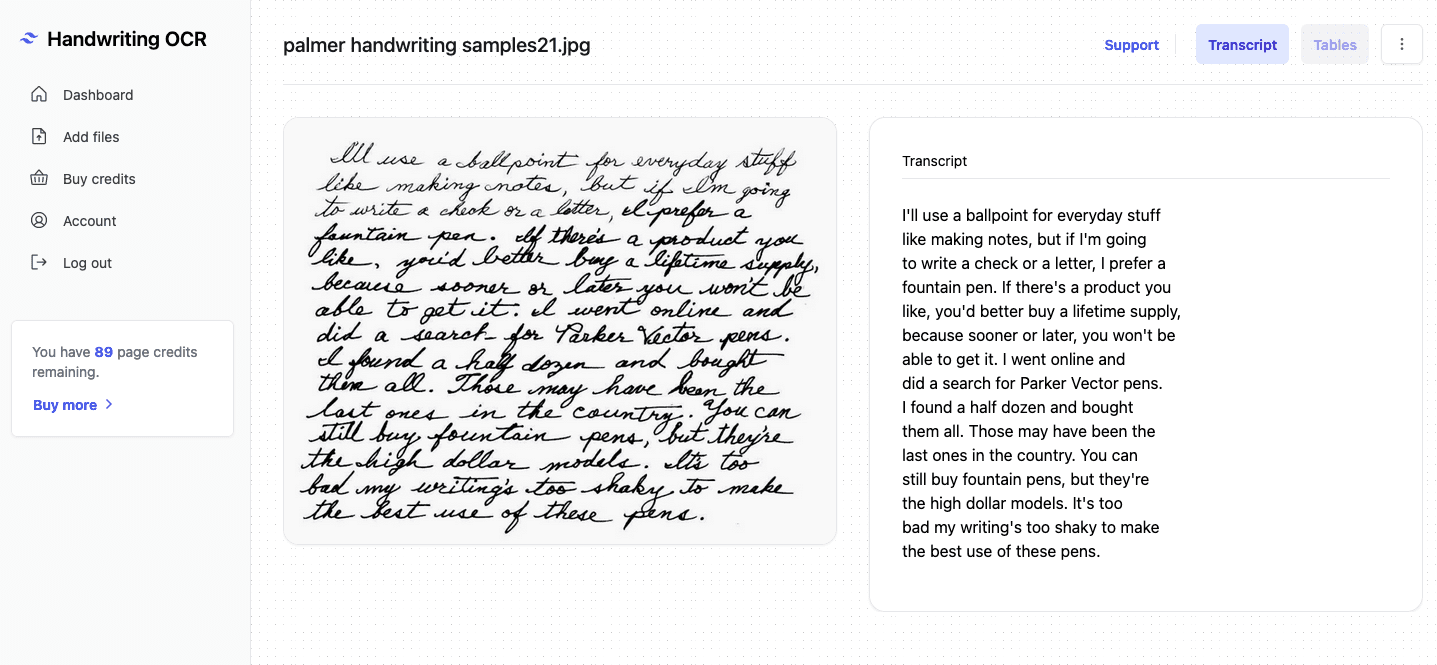 Handwriting OCR
Dashboard
Add files
Buy credits
Account
Log out
You have 89 page credits
remaining.
Buy more
palmer handwriting samples21.jpg
Support
Transcript
Tables
I'll use a ballpoint for everyday stuff
like making notes, but if I'm going
to write a check or a letter, I prefer a
fountain pen. If there's a product you
like, you'd better buy a lifetime supply,
because sooner or later you won't be
able to get it. I went online and
did a search for Parker Vector pens.
I found a half dozen and bought
them all. Those may have been the
last ones in the country. You can
still buy fountain pens, but they're
the high dollar models. It's too
bad my writing's too shaky to make
the best use of these pens.
Transcript
I'll use a ballpoint for everyday stuff
like making notes, but if I'm going
to write a check or a letter, I prefer a
fountain pen. If there's a product you
like, you'd better buy a lifetime supply,
because sooner or later, you won't be
able to get it. I went online and
did a search for Parker Vector pens.
I found a half dozen and bought
them all. Those may have been the
last ones in the country. You can
still buy fountain pens, but they're
the high dollar models. It's too
bad my writing's too shaky to make
the best use of these pens.